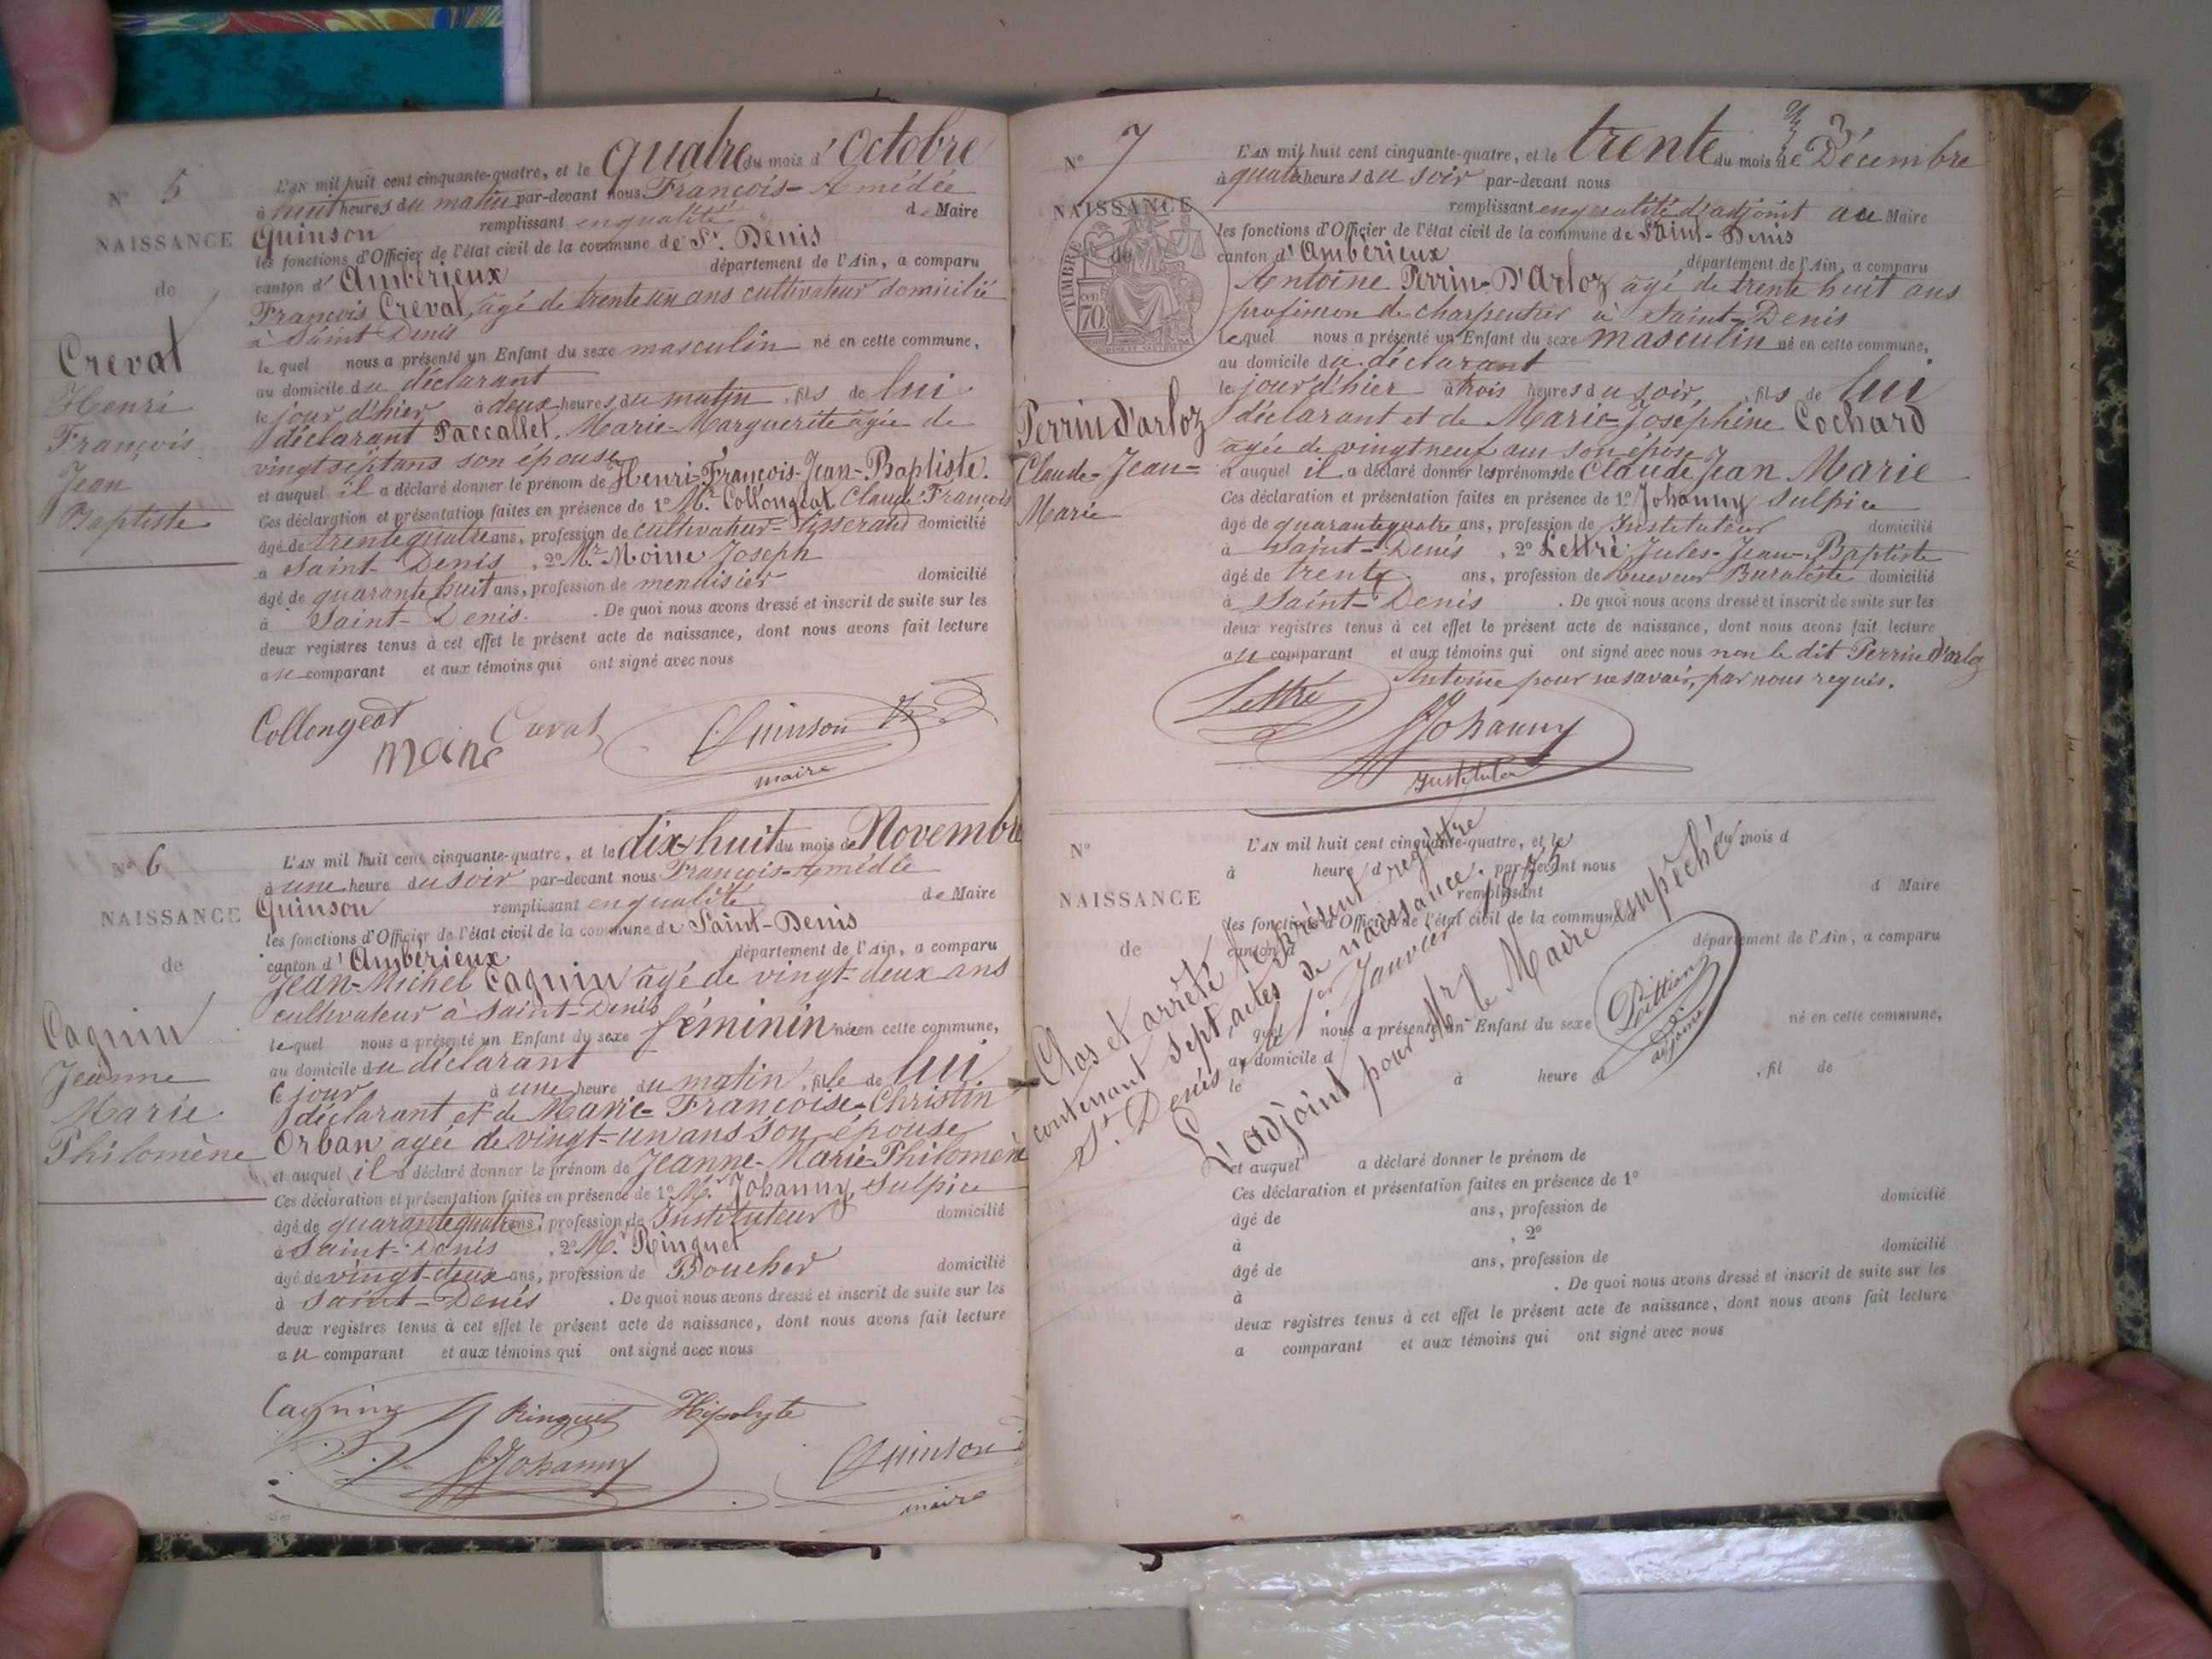 N° 5
NAISSANCE
de
Creval
Henri
François
Jean
Baptiste
L'AN mil huit cent cinquante-quatre, et le quatre du mois d'Octobre
à huit heures du matin par-devant nous François-Amédée
Quinson remplissant en qualité de Maire
les fonctions d'Officier de l'état civil de la commune de St. Denis
canton d'Ambérieux département de l'Ain, a comparu
François Creval, âgé de trente un ans cultivateur domicilié
à Saint Denis
lequel nous a présenté un Enfant du sexe masculin né en cette commune,
au domicile du déclarant
le jour d'hier à deux heures du matin, fils de lui
déclarant Paccallet, Marie-Marguerite âgée de
vingt sept ans son épouse
et auquel il a déclaré donner le prénom de Henri-François-Jean-Baptiste.
Ces déclaration et présentation faites en présence de 1° Mr. Collongeat Claude François
âgé de trente quatre ans, profession de cultivateur-tisserand domicilié
à Saint-Denis, 2° Mr. Moine Joseph
âgé de quarante huit ans, profession de menuisier domicilié
à Saint-Denis. De quoi nous avons dressé et inscrit de suite sur les
deux registres tenus à cet effet le présent acte de naissance, dont nous avons fait lecture
au comparant et aux témoins qui ont signé avec nous
Collongeat Creval Quinson
moine
maire
N° 6
NAISSANCE
de
Cagnin
Jeanne
Marie
Philomène
L'AN mil huit cent cinquante-quatre, et le dix-huit du mois de Novembre
à une heure du soir par-devant nous François-Amédée
Quinson remplissant en qualité de Maire
les fonctions d'Officier de l'état civil de la commune de Saint-Denis
canton d'Ambérieux département de l'Ain, a comparu
Jean-Michel Cagnin âgé de vingt-deux ans
cultivateur à Saint-Denis
lequel nous a présenté un Enfant du sexe féminin née en cette commune,
au domicile du déclarant
le jour à une heure du matin, fille de lui
déclarant et de Marie-Françoise-Christin
Orban agée de vingt-un ans son épouse
et auquel il a déclaré donner le prénom de Jeanne-Marie-Philomène
Ces déclaration et présentation faites en présence de 1° Mr. Johanny, Sulpice
âgé de quarante quatre ans, profession de Instituteur domicilié
à Saint-Denis, 2° Mr Ringuet
âgé de vingt-deux ans, profession de Boucher domicilié
à Saint-Denis. De quoi nous avons dressé et inscrit de suite sur les
deux registres tenus à cet effet le présent acte de naissance, dont nous avons fait lecture
au comparant et aux témoins qui ont signé avec nous
Cagnin Ringuet Hipolyte
Johanny Quinson
maire
N° 7
NAISSANCE
de
TIMBRE
70
Perrin d'arloz
Claude-Jean-
Marie
L'AN mil huit cent cinquante-quatre, et le trente du mois de Décembre
à quatre heures du soir par-devant nous
remplissant en qualité d'adjoint au Maire
les fonctions d'Officier de l'état civil de la commune de Saint-Denis
canton d'Ambérieux département de l'Ain, a comparu
Antoine Perrin-D'Arloz âgé de trente huit ans
profession de charpentier à Saint-Denis
lequel nous a présenté un Enfant du sexe masculin né en cette commune,
au domicile du déclarant
le jour d'hier à trois heures du soir, fils de lui
déclarant et de Marie-Joséphine Cochard
agée de vingt neuf ans son épose
et auquel il a déclaré donner les prénoms de Claude Jean Marie
Ces déclaration et présentation faites en présence de 1° Johanny Sulpice
âgé de quarante quatre ans, profession de Instituteur domicilié
à Saint-Denis, 2° Lettré Jules-Jean-Baptiste
âgé de trente ans, profession de Receveur Buraliste domicilié
à Saint-Denis. De quoi nous avons dressé et inscrit de suite sur les
deux registres tenus à cet effet le présent acte de naissance, dont nous avons fait lecture
au comparant et aux témoins qui ont signé avec nous non le dit Perrin d'arloz
Antoine pour ne savoir, par nous requis.
Lettré
Johanny
Instituteur
N°
NAISSANCE
de
L'AN mil huit cent cinquante-quatre, et le du mois d
à heure d par-devant nous
remplissant d Maire
les fonctions d'Officier de l'état civil de la commune d
canton d département de l'Ain, a comparu
quel nous a présenté un Enfant du sexe né en cette commune,
au domicile d
le à heure d , fil de
et auquel a déclaré donner le prénom de
Ces déclaration et présentation faites en présence de 1°
âgé de ans, profession de domicilié
à , 2°
âgé de ans, profession de domicilié
à . De quoi nous avons dressé et inscrit de suite sur les
deux registres tenus à cet effet le présent acte de naissance, dont nous avons fait lecture
a comparant et aux témoins qui ont signé avec nous
Clos et arrêté le présent registre
contenant sept actes de naissance.
St. Denis le 1er Janvier 1855
L'adjoint pour Mr le Maire empêché
adjoint